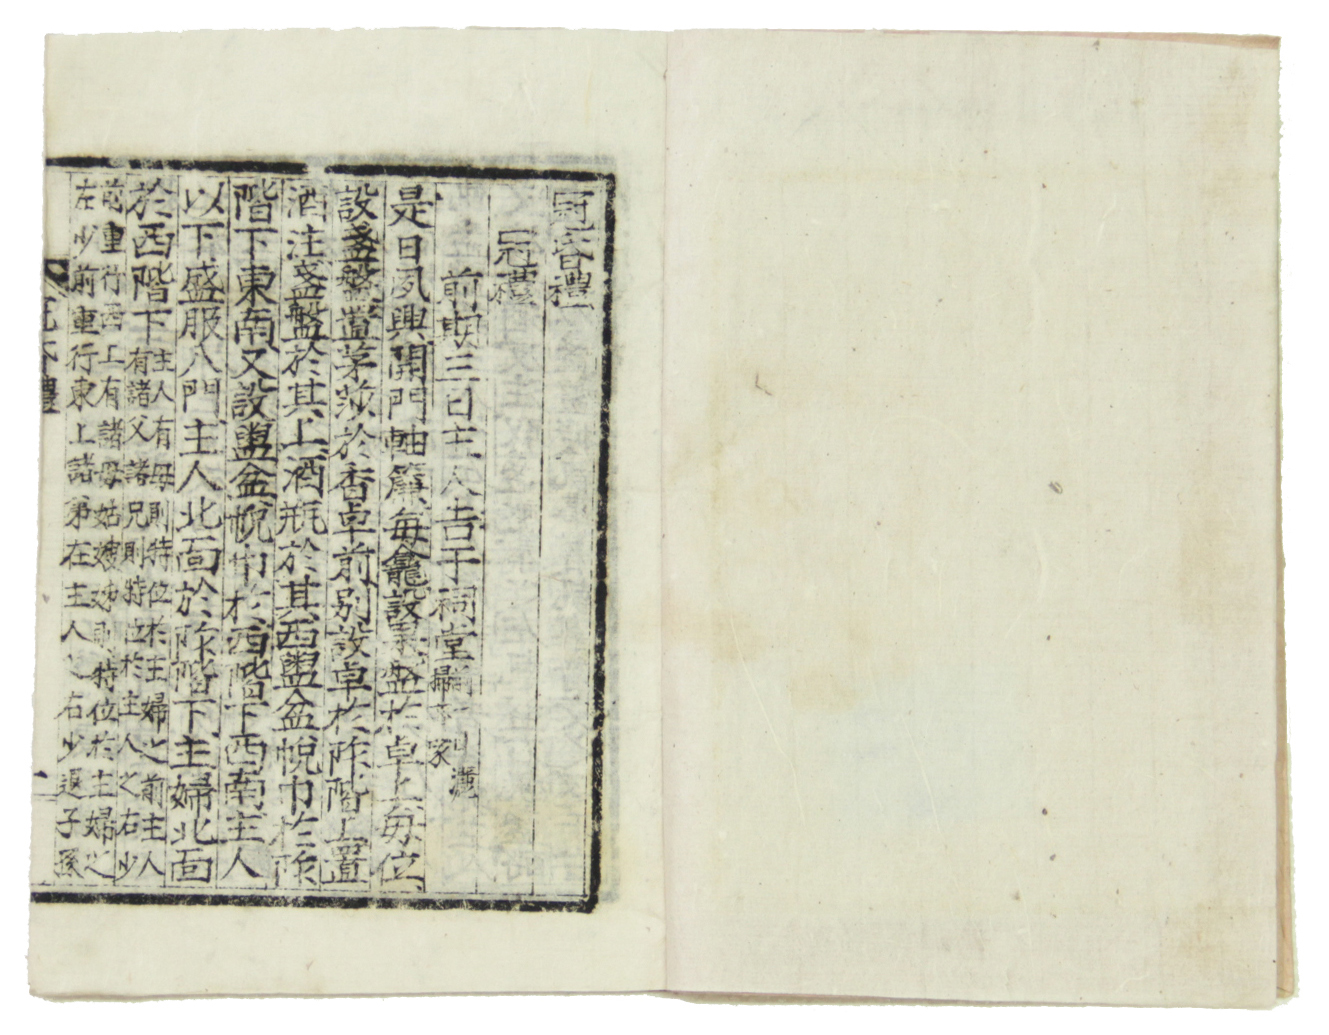 冠昏禮
冠禮
前期三日主人告于祠堂
是日夙興開門軸簾每龕設果盤於卓上每位
設盞盤置茅沙於香卓前別設卓於阼階上置
酒注盞盤於其上酒瓶於其西盥盆帨巾於阼
階下東南又設盥盆帨巾於西階下西南主人
以下盛服入門主人北面於阼階下主婦北面
於西階下
主人有母則特位於主婦之前主人
有諸父諸兄則特位於主人之右少
前重行西上有諸母姑嫂姊則特位於主婦之
左少前重行東上諸弟在主人之右少退子孫